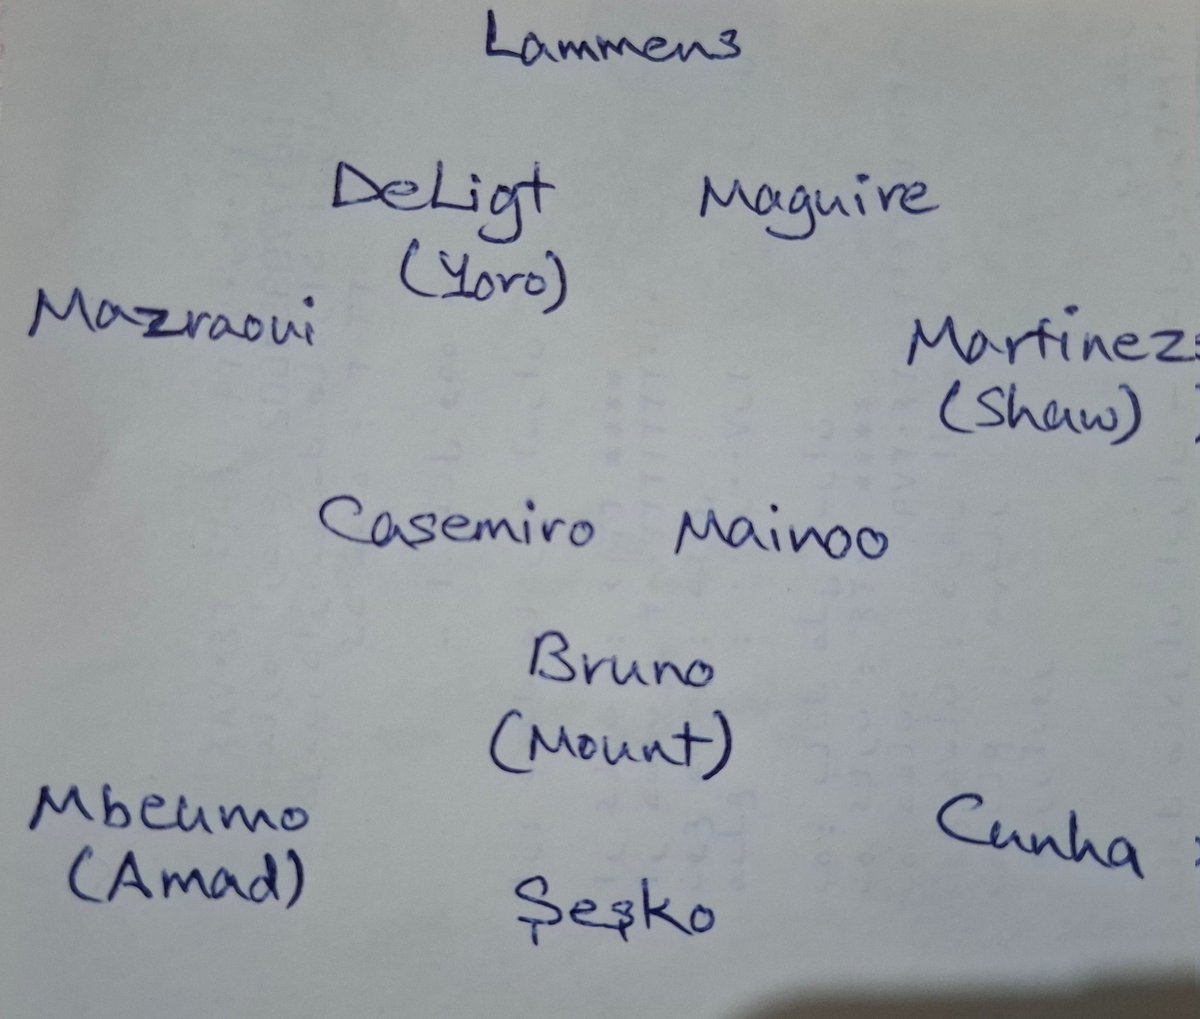 Lammens
DeLigt Maguire
(Yoro)
Mazraoui Martinez
(Shaw)
Casemiro Mainoo
Bruno
(Mount)
Mbeumo Cunha
(Amad)
Şeşko